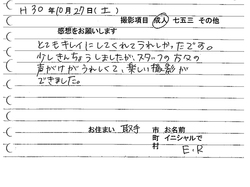 H30年10月27日(土)
撮影項目 成人 七五三 その他
感想をお願いします
とてもキレイにしてくれてうれしかったです。
少しきんちょうしましたが、スタッフの方々の
声がけがうれしくて、楽しい撮影が
できました。
お住まい 取手 市町村 お名前 イニシャルで E.R